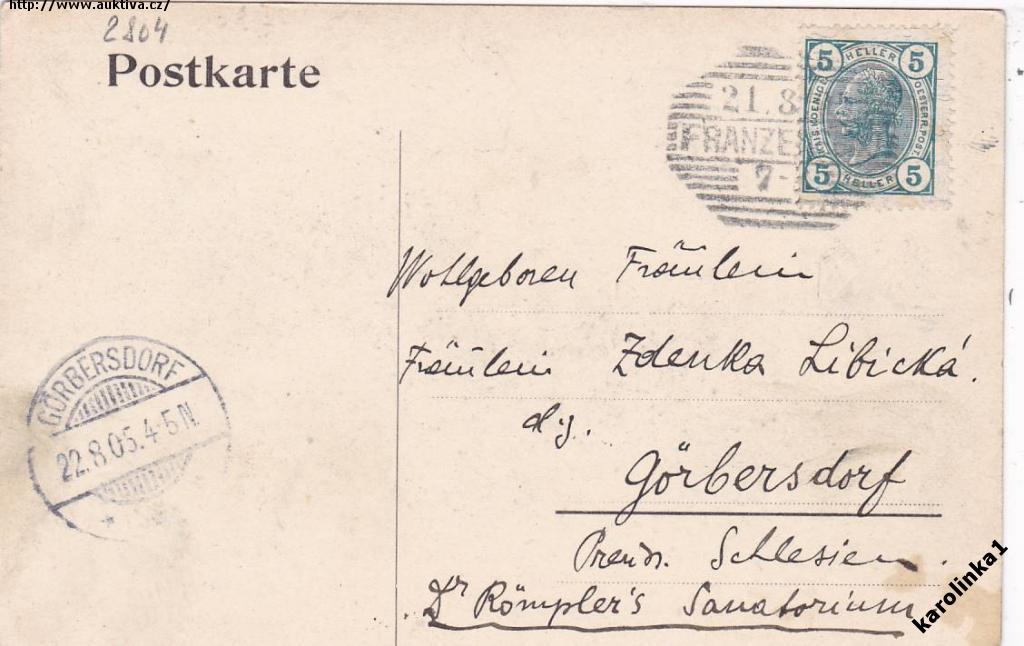 http://www.auktiva.cz/
2804
Postkarte
21.8
FRANZE
7-
5 HELLER 5
KAIS. KOENIGL. OESTERR. POST.
5 HELLER 5
Wohlgeboren Fräulein
Fräulein Zdenka Libická.
d. z.
Görbersdorf
Preuss. Schlesien.
Dr Römpler's Sanatorium
GÖRBERSDORF
22.8.05.4-5N.
karolinka1